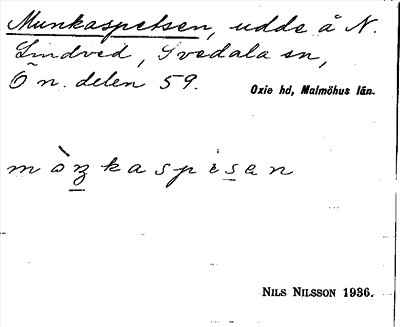 Munkaspetsen, udde å N.
Lindved, Svedala sn,
Ö n. delen 59.
Oxie hd, Malmöhus län.
NILS NILSSON 1936.